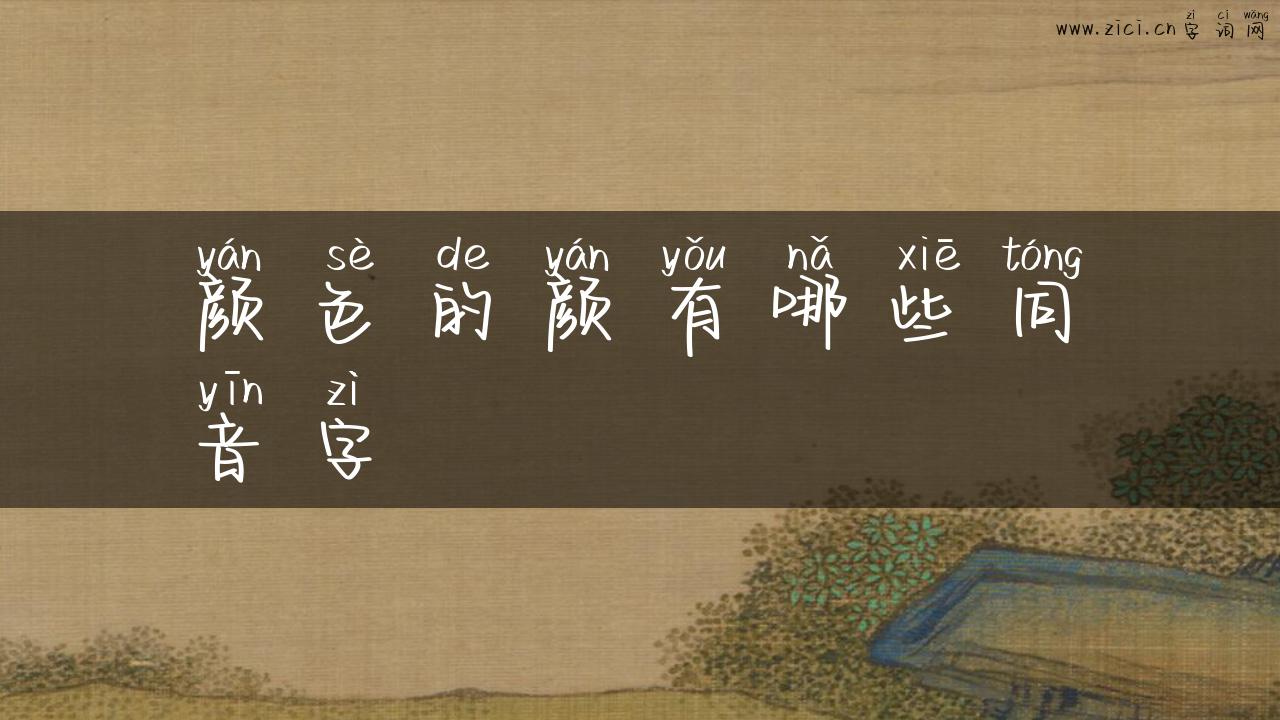 zì cí wǎng
www.zici.cn 字词网
yán sè de yán yǒu nǎ xiē tóng
颜色的颜有哪些同
yīn zì
音字